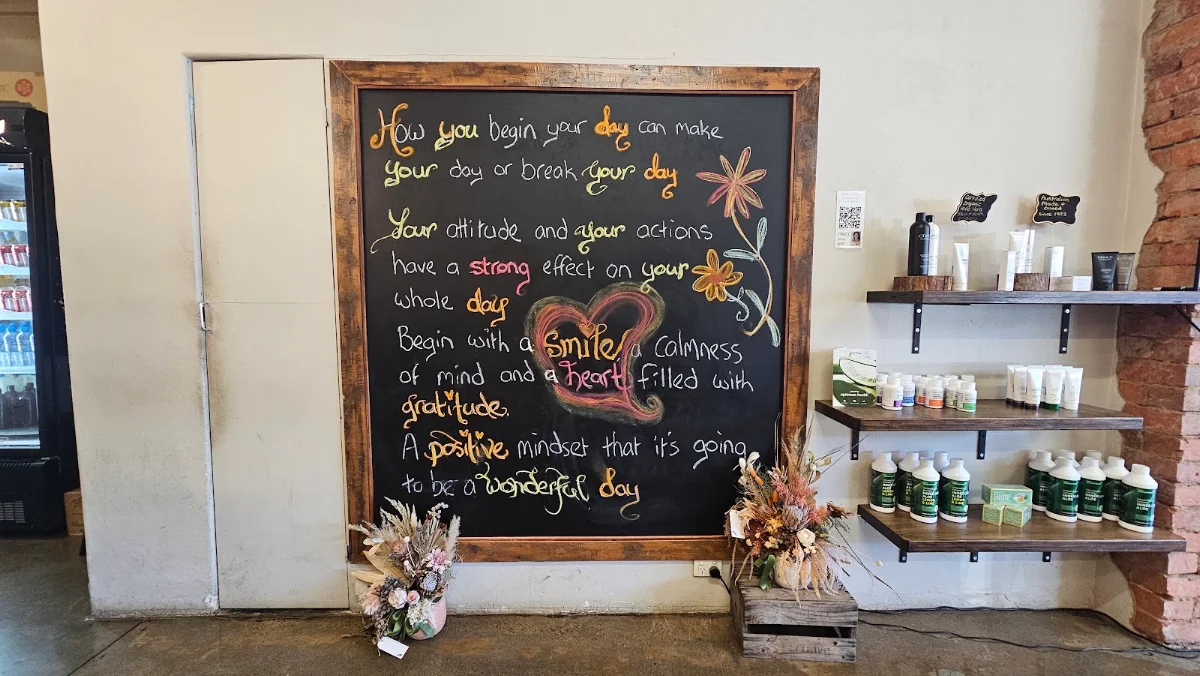 How you begin your day can make
your day or break your day
Your attitude and your actions
have a strong effect on your
whole day
Begin with a smile a calmness
of mind and a heart filled with
gratitude.
A positive mindset that it's going
to be a wonderful day
Certified
Organic
Aloe Vera
Australian
Made &
Owned
Since 1993